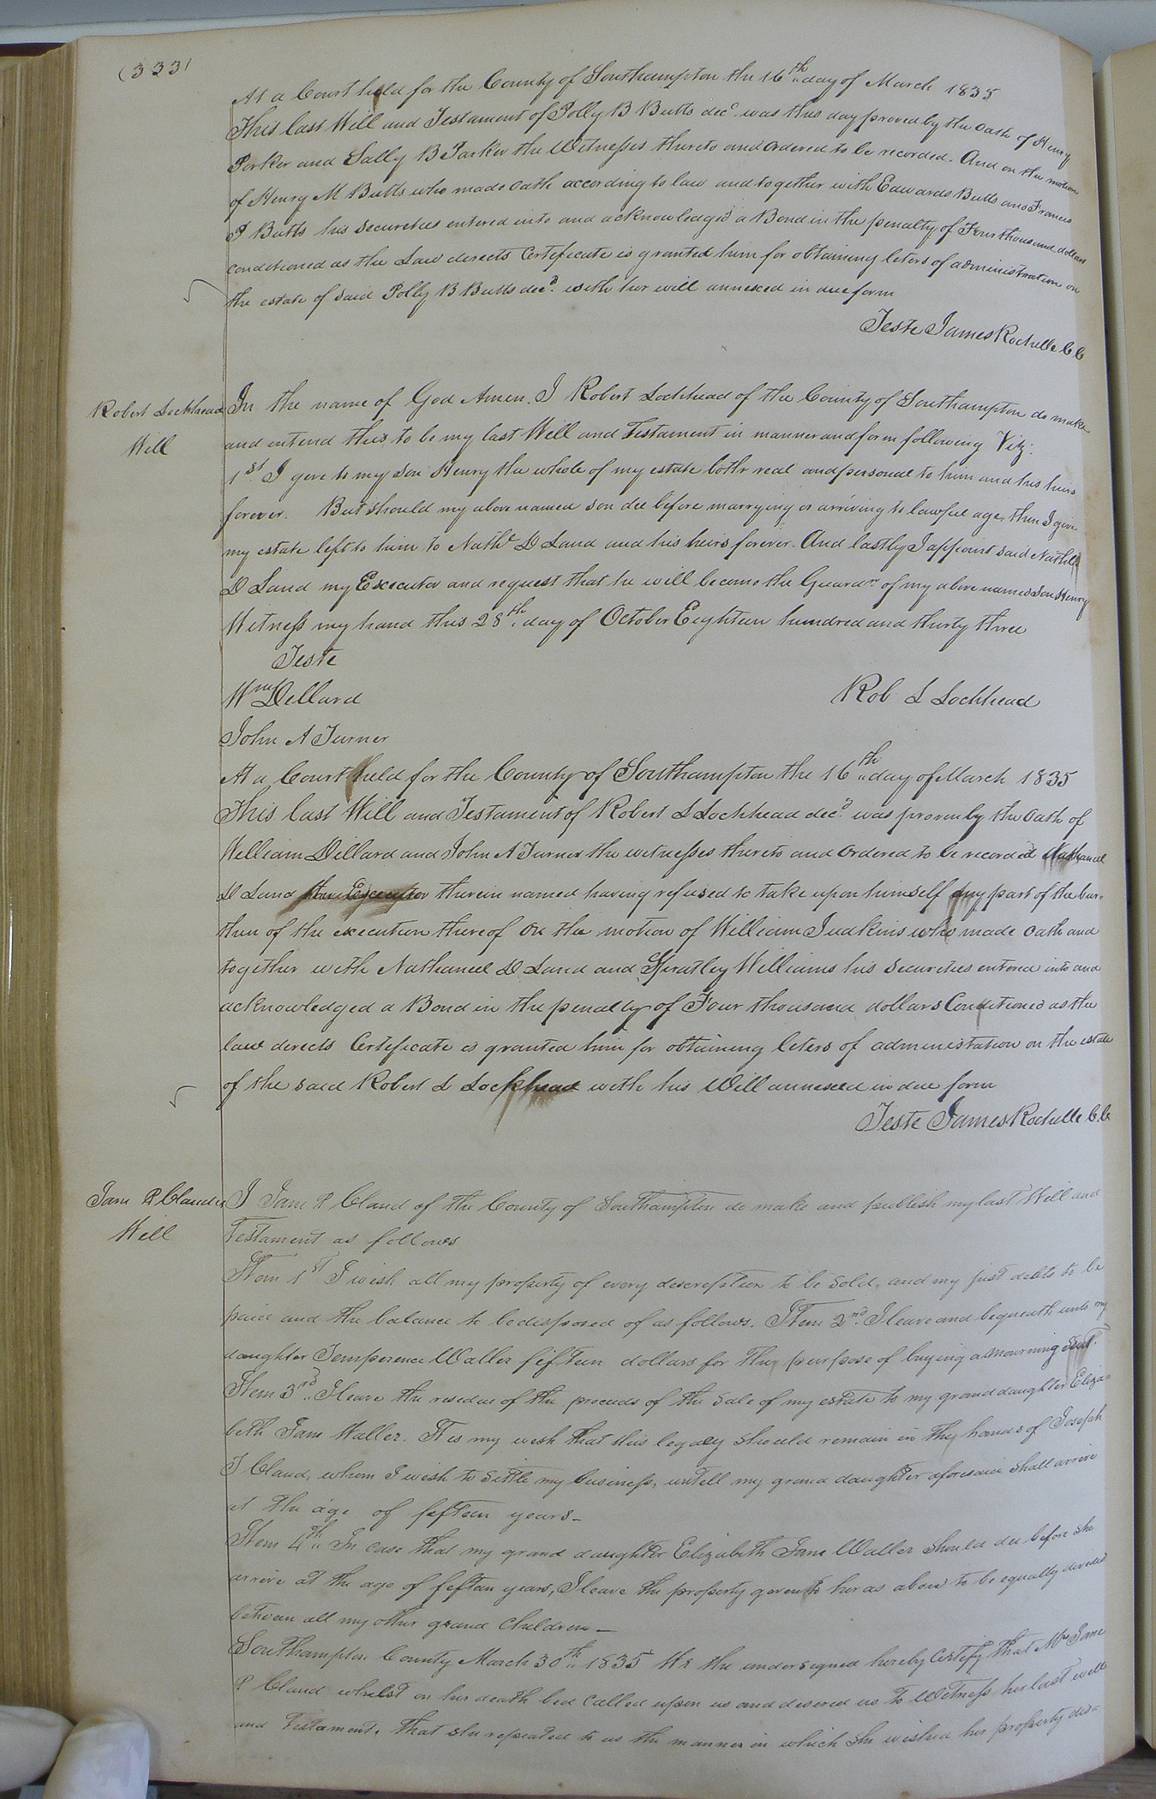 (333)
At a Court held for the County of Southampton the 16th day of March 1835
This last Will and Testament of Polly B Butts decd was this day proved by the oath of Henry
Parker and Sally B Parker the Witnesses thereto and ordered to be recorded. And on the motion
of Henry M Butts who made oath according to law and together with Edwards Butts and Francis
J Butts his securities entered into and acknowledged a Bond in the penalty of Four thousand dollars
conditioned as the Law directs Certificate is granted him for obtaining leters of administration on
the estate of said Polly B Butts decd. with her will annexed in due form
Teste James Rochelle C.C
Robert Lockhead
Will
In the name of God Amen. I Robert Lockhead of the County of Southampton do make
and intend this to be my last Will and Testament in manner and form following Viz:
1st I give to my son Henry the whole of my estate both real and personal to him and his heirs
forever. But should my above named son die before marrying or arriving to lawful age, then I give
my estate left to him to Nathl D Land and his heirs forever. And lastly I appoint said Nathl
D Land my Executor and request that he will become the Guardn of my above named son Henry
Witness my hand this 28th day of October Eighteen hundred and thirty three
Teste
Wm Dillard
Rob L Lockhead
John A Turner
At a Court held for the County of Southampton the 16th day of March 1835
This last Will and Testament of Robert L Lockhead decd was proven by the oath of
William Dillard and John A Turner the witnesses thereto and ordered to be recorded Nathaniel
D Land the Executor therein named having refused to take upon himself any part of the bur-
then of the execution thereof On the motion of William Judkins who made oath and
together with Nathaniel D Land and Spratley Williams his securities entered into and
acknowledged a Bond in the penalty of Four thousand dollars Conditioned as the
law directs Certificate is granted him for obtaining leters of administration on the estate
of the said Robert L Lockhead with his Will annexed in due form
Teste James Rochelle C.C.
Jane P Claud's
Will
I Jane P Claud of the County of Southampton do make and publish my last Will and
Testament as follows
Item 1st I wish all my property of every description to be sold, and my just debts to be
paid and the balance to be disposed of as follows. Item 2nd. I leave and bequeath unto my
daughter Temperence Waller fifteen dollars for the purpose of buying a mourning suit.
Item 3rd I leave the residue of the proceeds of the sale of my estate to my granddaughter Eliza-
beth Jane Waller. It is my wish that this legacy should remain in the hands of Joseph
J Claud, whom I wish to settle my business, untill my grand daughter aforesaid shall arrive
at the age of fifteen years_
Item 4th In case that my grand daughter Elizabeth Jane Waller should die before she
arrive at the age of fifteen years, I leave the property given to her as above to be equally divided
between all my other grand children_
Southampton County March 30th 1835 We the undersigned hereby Certify that Mrs Jane
P Claud whilst on her death bed called upon us and desired us to Witness her last will
and Testament. That she repeated to us the manner in which she wished her property dis-